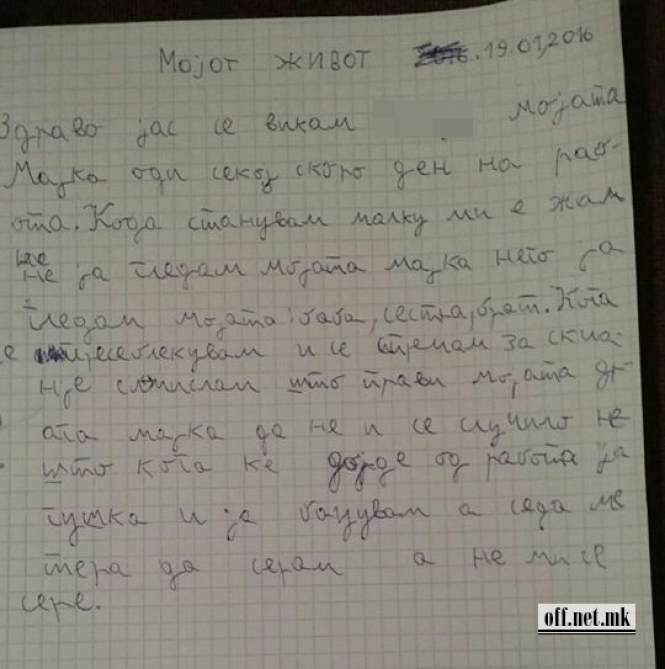 Мојот живот 19.01,2016
Здраво јас се викам мојата
Мајка оди секој скоро ден на раб-
ота. Кода станувам малку ми е жал
што
не ја гледам мојата мајка него ја
гледам мојата баба, сестра, брат. Кога
се пресоблекувам и се спремам за
мислам што прави мојата др-
ага мајка да не и се случило не
што кога ке дојде од работа ја
гушка и ја бацувам а седа ме
тера да серам а не ми се
сере.
off.net.mk